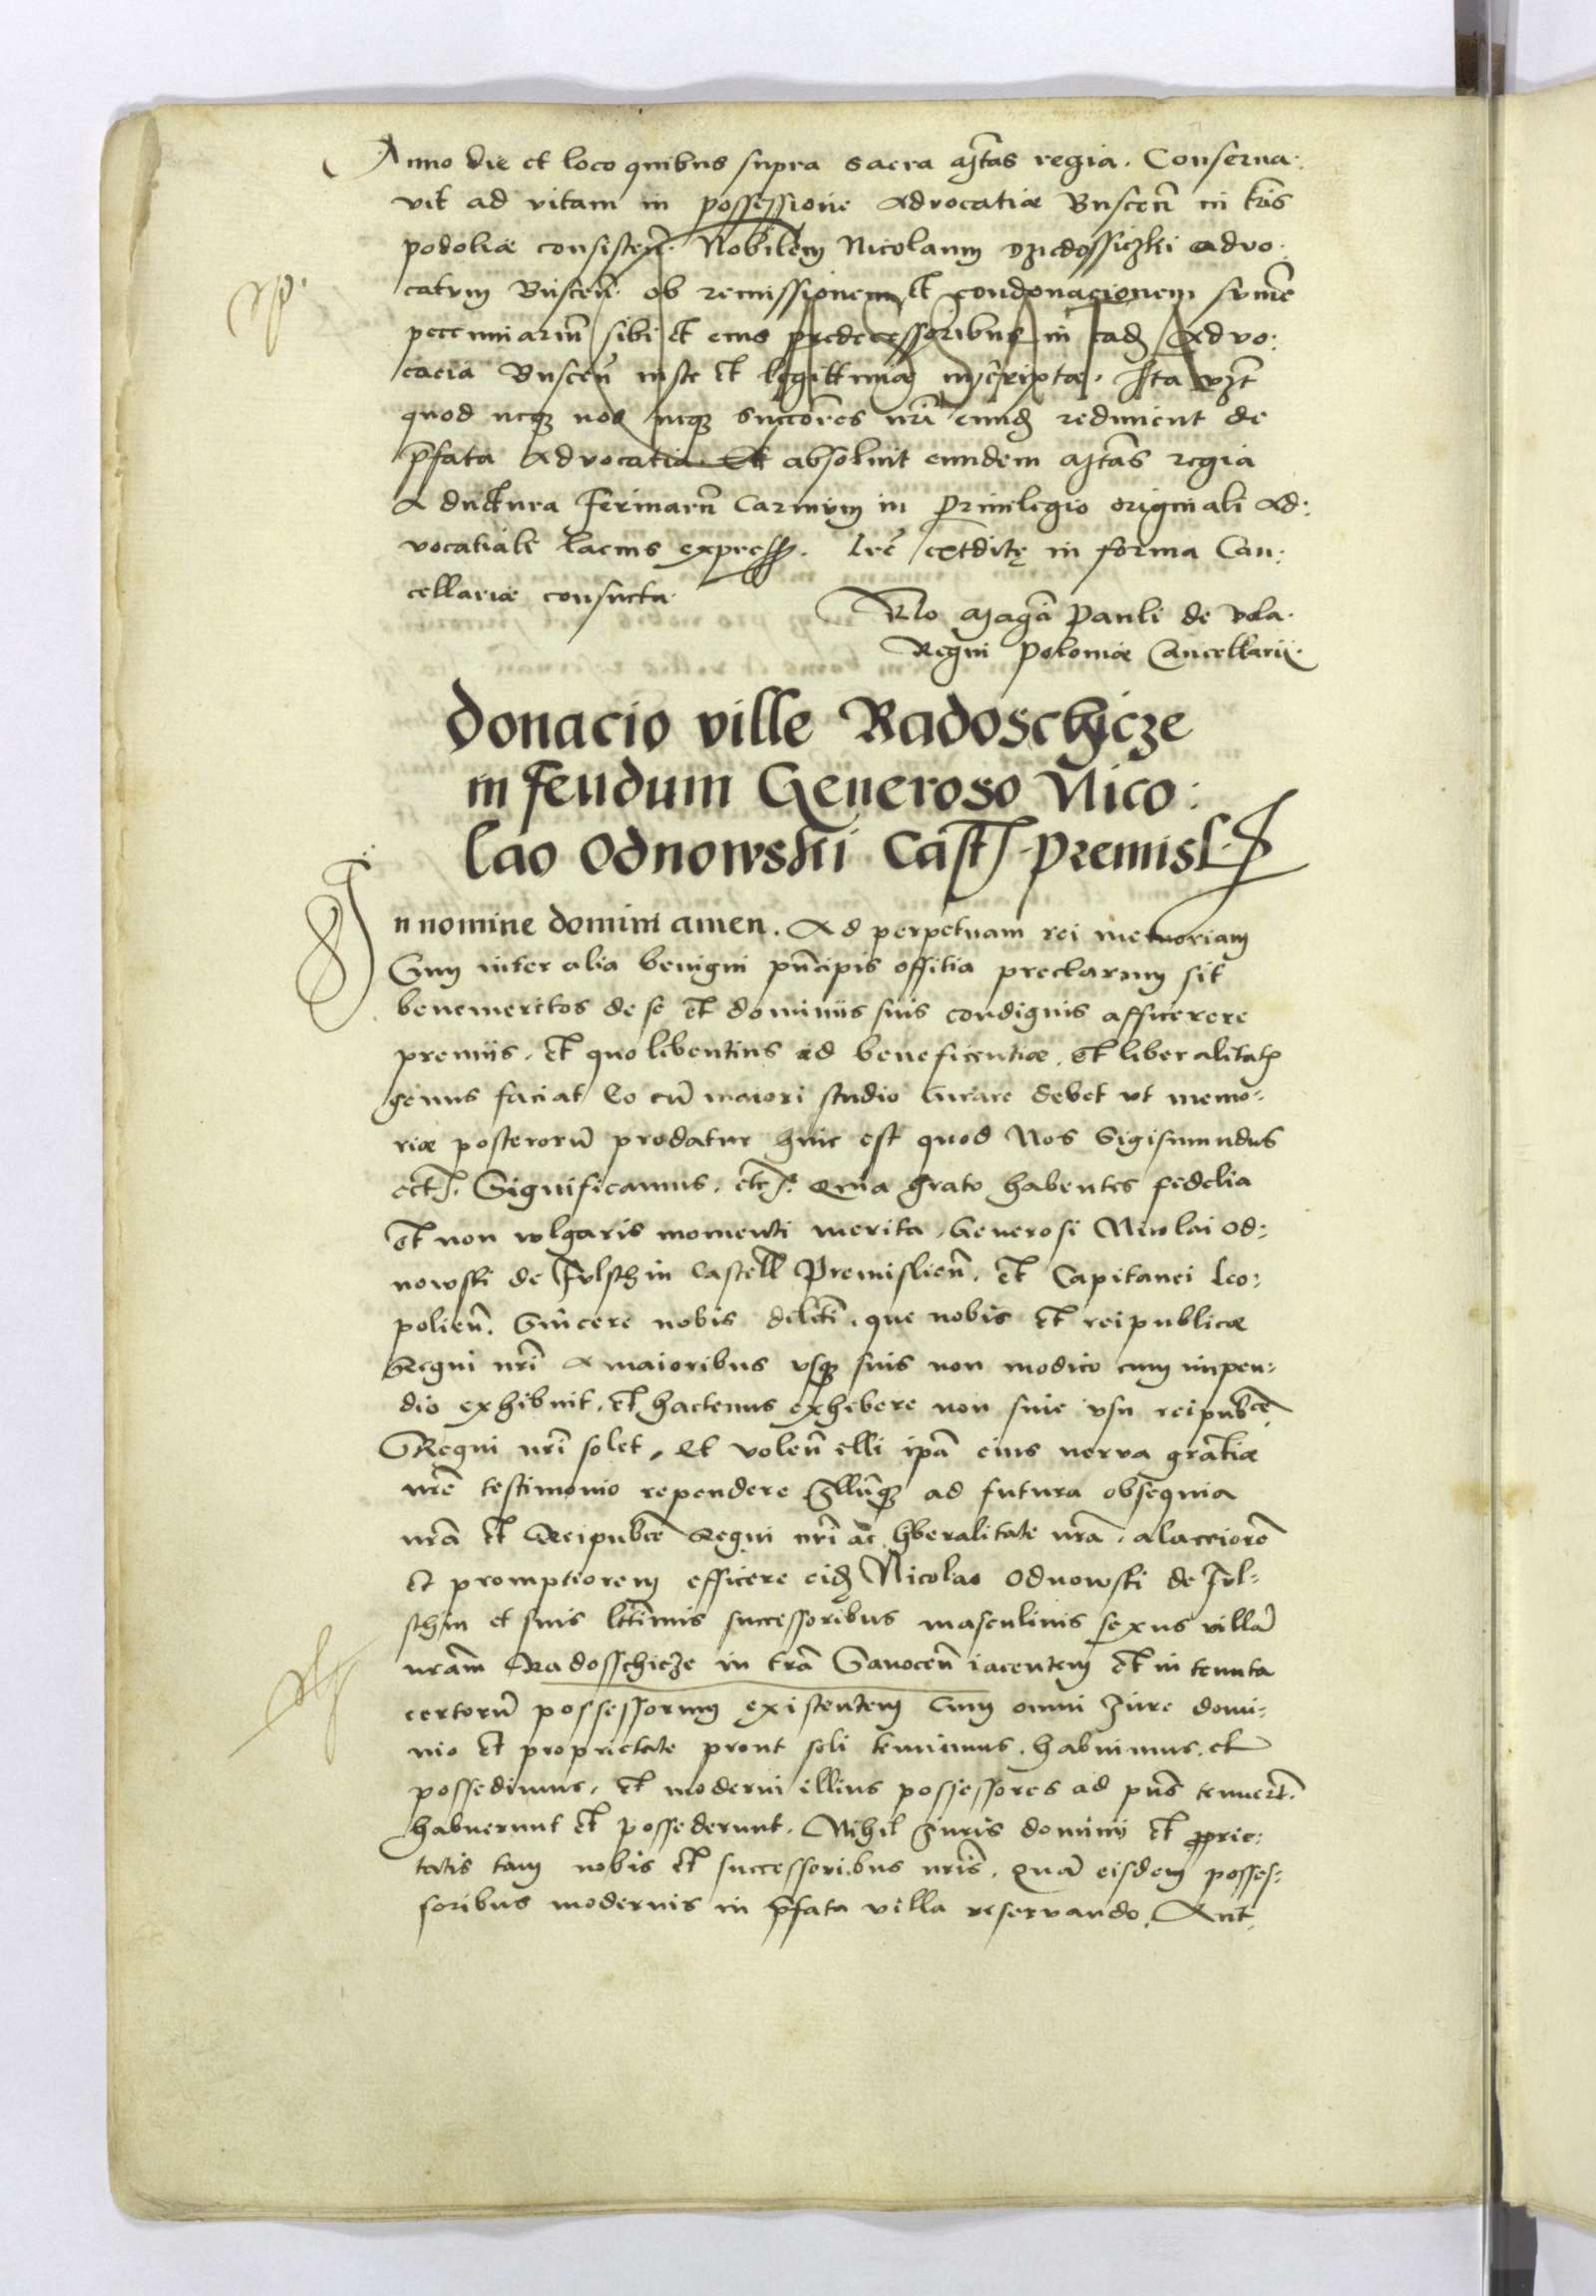 Anno die et loco quibus supra sacra Mtas regia. Conserua:
vit ad vitam in possessione Advocatiæ Buscen in tris
podoliæ consisten. Nobilem Nicolaum advo:
catum Buscen. ob remissionem et condonacionem sume
peccuniarum sibi et eius predecessoribus in ead Advo:
cacia Buscen iuste et legittimæ inscripta. Ita vzt
quod neqz nos neqz succores nri eund rediment de
pfata Advocatia. Et absoluit eundem Mtas regia
A ductura ferinarum Carnium in Priuilegio originali Ad:
vocatiali lacius express. Lre extditę in forma Can:
cellariæ consueta.
Rlo Magci Pauli de vola.
Regni Poloniæ Cancellarii.
Donacio ville Radoschicze
in feudum Generoso Nico:
lao Odnowski Cast. Premisl.
In nomine domini amen. Ad perpetuam rei memoriam
Cum inter alia benigni pncipis offitia preclarum sit
benemeritos de se et dominiis suis condignis afficerere
premiis. et quo libentius id beneficentiæ et liberalitatis
genus faciat Eo cu maiori studio Curare debet ut memo-
riæ posteroru prodatur hinc est quod Nos Sigismundus
ect. Significamus. etc. Quia grato habentes fidelia
et non wlgaris momenti merita Generosi Nicolai Od:
nowski de fvlschin Castell Premislien. et Capitanei Leo:
polien. Sincere nobis dilcti. que nobis et reipublicæ
Regni nri A maioribus vsqz suis non modico cum inpen:
dio exhibuit. et hactenus exhibere non sine vsu reipubce
Regni nri solet. Et volen illi ipam eius nerva gratiæ
nre testimonio rependere Illuqz ad futura obsequia
nra et Reipubce Regni nri ac liberalitate nra. alacriorem
et promptiorem efficere eid Nicolao Odnowski de fvl-
schin et suis lttimis successoribus masculinis sexus villa
nram Radosschicze in tra Sanocen iacentem et in tenuta
certoru possessorum existentem Cum omni Iure domi-
nio et proprietate prout soli tenuimus. habuimus. et
possedimus. et moderni illius possessores ad pns tenuert.
habuerunt et possederunt. Nihil Iuris dominii et prie:
tatis tam nobis et successoribus nris. qua eisdem posses-
soribus modernis in pfata villa reservando. Ant